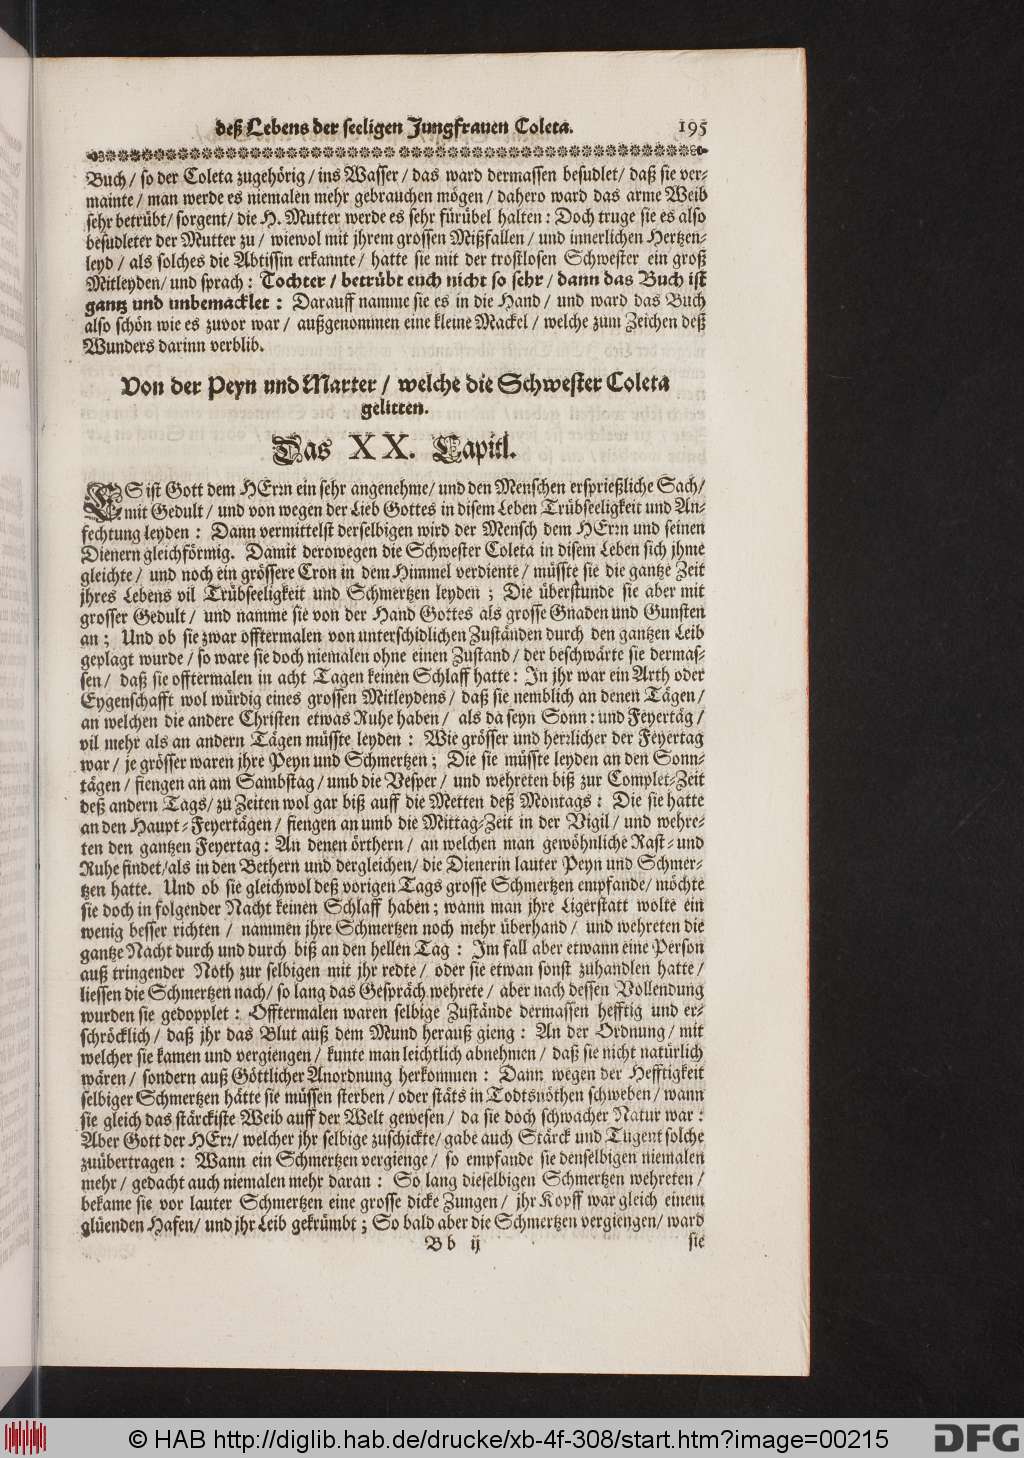 deß Lebens der seeligen Jungfrauen Coleta. 195
Buch / so der Coleta zugehörig / ins Wasser / das ward dermassen besudlet / daß sie ver-
mainte / man werde es niemalen mehr gebrauchen mögen / dahero ward das arme Weib
sehr betrübt / sorgent / die H. Mutter werde es sehr fürübel halten : Doch truge sie es also
besudleter der Mutter zu / wiewol mit jhrem grossen Mißfallen / und innerlichen Hertzen-
leyd / als solches die Abtissin erkannte / hatte sie mit der trostlosen Schwester ein groß
Mitleyden / und sprach : Tochter / betrübt euch nicht so sehr / dann das Buch ist
gantz und unbemacklet : Darauff namme sie es in die Hand / und ward das Buch
also schön wie es zuvor war / außgenommen eine kleine Mackel / welche zum Zeichen deß
Wunders darinn verblib.
Von der Peyn und Marter / welche die Schwester Coleta
gelitten.
Das XX. Capitl.
ES ist Gott dem HErrn ein sehr angenehme / und den Menschen ersprießliche Sach /
mit Gedult / und von wegen der Lieb Gottes in disem Leben Trübseeligkeit und An-
fechtung leyden : Dann vermittelst derselbigen wird der Mensch dem HErrn und seinen
Dienern gleichförmig. Damit derowegen die Schwester Coleta in disem Leben sich jhme
gleichte / und noch ein grössere Cron in dem Himmel verdiente / müsste sie die gantze Zeit
jhres Lebens vil Trübseeligkeit und Schmertzen leyden ; Die überstunde sie aber mit
grosser Gedult / und namme sie von der Hand Gottes als grosse Gnaden und Gunsten
an ; Und ob sie zwar offtermalen von unterschidlichen Zuständen durch den gantzen Leib
geplagt wurde / so ware sie doch niemalen ohne einen Zustand / der beschwärte sie dermas-
sen / daß sie offtermalen in acht Tagen keinen Schlaff hatte : In jhr war ein Arth oder
Eygenschafft wol würdig eines grossen Mitleydens / daß sie nemblich an denen Tägen /
an welchen die andere Christen etwas Ruhe haben / als da seyn Sonn: und Feyertäg /
vil mehr als an andern Tägen müsste leyden : Wie grösser und herrlicher der Feyertag
war / je grösser waren jhre Peyn und Schmertzen ; Die sie müsste leyden an den Sonn-
tägen / fiengen an am Sambstag / umb die Vesper / und wehreten biß zur Complet-Zeit
deß andern Tags / zu Zeiten wol gar biß auff die Metten deß Montags : Die sie hatte
an den Haupt-Feyertägen / fiengen an umb die Mittag-Zeit in der Vigil / und wehre-
ten den gantzen Feyertag : An denen örthern / an welchen man gewöhnliche Rast- und
Ruhe findet / als in den Bethern und dergleichen / die Dienerin lauter Peyn und Schmer-
tzen hatte. Und ob sie gleichwol deß vorigen Tags grosse Schmertzen empfande / möchte
sie doch in folgender Nacht keinen Schlaff haben ; wann man jhre Ligerstatt wolte ein
wenig besser richten / nammen jhre Schmertzen noch mehr überhand / und wehreten die
gantze Nacht durch und durch biß an den hellen Tag : Im fall aber etwann eine Person
auß tringender Noth zur selbigen mit jhr redte / oder sie etwan sonst zuhandlen hatte /
liessen die Schmertzen nach / so lang das Gespräch wehrete / aber nach dessen Vollendung
wurden sie gedopplet : Offtermalen waren selbige Zustände dermassen hefftig und er-
schröcklich / daß jhr das Blut auß dem Mund herauß gieng : An der Ordnung / mit
welcher sie kamen und vergiengen / kunte man leichtlich abnehmen / daß sie nicht natürlich
wären / sondern auß Göttlicher Anordnung herkommen : Dann wegen der Hefftigkeit
selbiger Schmertzen hätte sie müssen sterben / oder stäts in Todtsnöthen schweben / wann
sie gleich das stärckiste Weib auff der Welt gewesen / da sie doch schwacher Natur war :
Aber Gott der HErr / welcher jhr selbige zuschickte / gabe auch Stärck und Tugent solche
zuübertragen : Wann ein Schmertzen vergienge / so empfande sie denselbigen niemalen
mehr / gedacht auch niemalen mehr daran : So lang dieselbigen Schmertzen wehreten /
bekame sie vor lauter Schmertzen eine grosse dicke Zungen / jhr Kopff war gleich einem
glüenden Hafen / und jhr Leib gekrümbt ; So bald aber die Schmertzen vergiengen / ward
B b ij sie
© HAB http://diglib.hab.de/drucke/xb-4f-308/start.htm?image=00215 DFG